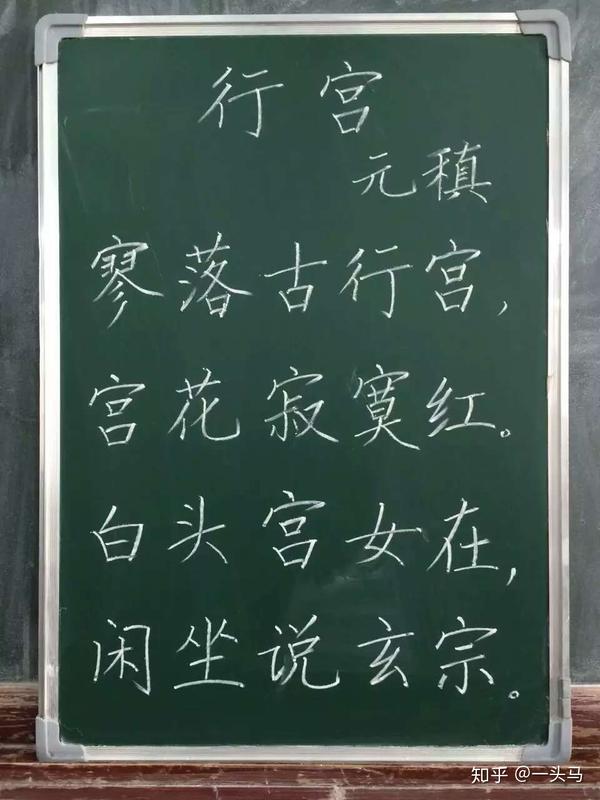 行宫
元稹
寥落古行宫，
宫花寂寞红。
白头宫女在，
闲坐说玄宗。
知乎 @一头马